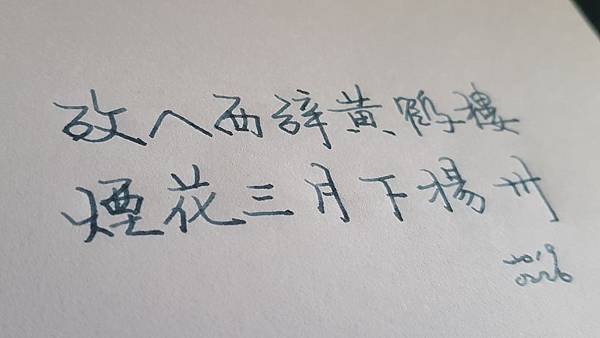 故人西辞黄鹤樓
煙花三月下揚州
2019
0226